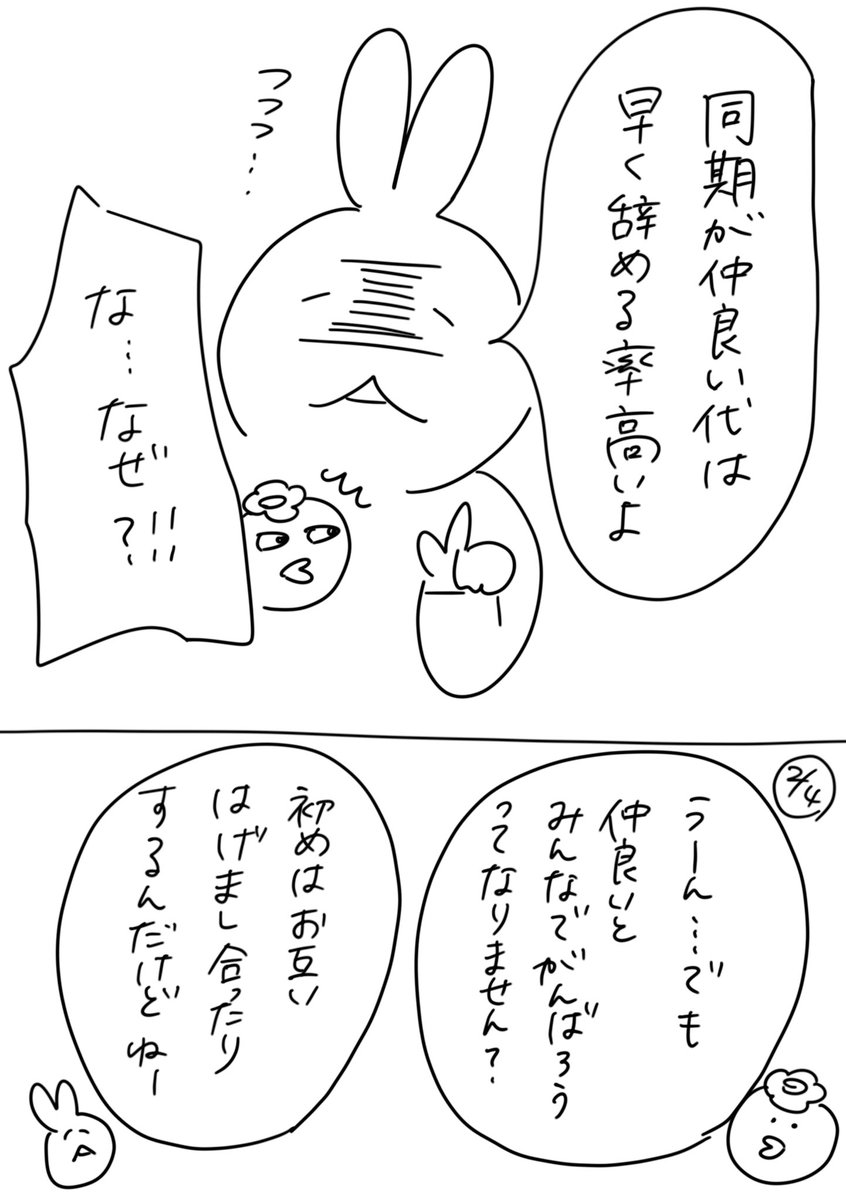 同期が仲良い代は
早く辞める率高いよ
つつつ…
な…なぜ?!!!
2/4
うーん…でも
仲良いと
みんなでがんばろう
ってなりません?
初めはお互い
はげまし合ったり
するんだけどねー